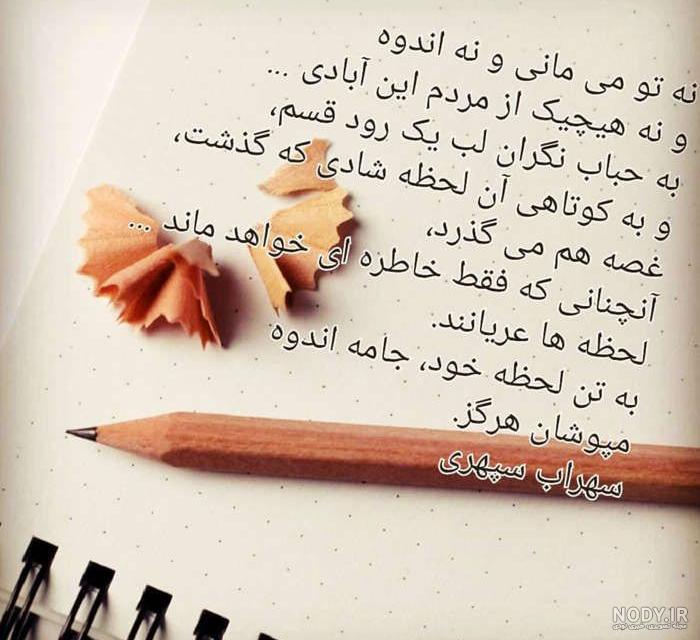 نه تو می مانی و نه اندوه
و نه هیچیک از مردم این آبادی ...
به حباب نگران لب یک رود قسم،
و به کوتاهی آن لحظه شادی که گذشت،
غصه هم می گذرد،
آنچنانی که فقط خاطره ای خواهد ماند ...
لحظه ها عریانند.
به تن لحظه خود، جامه اندوه
مپوشان هرگز.
سهراب سپهری
NODY.IR